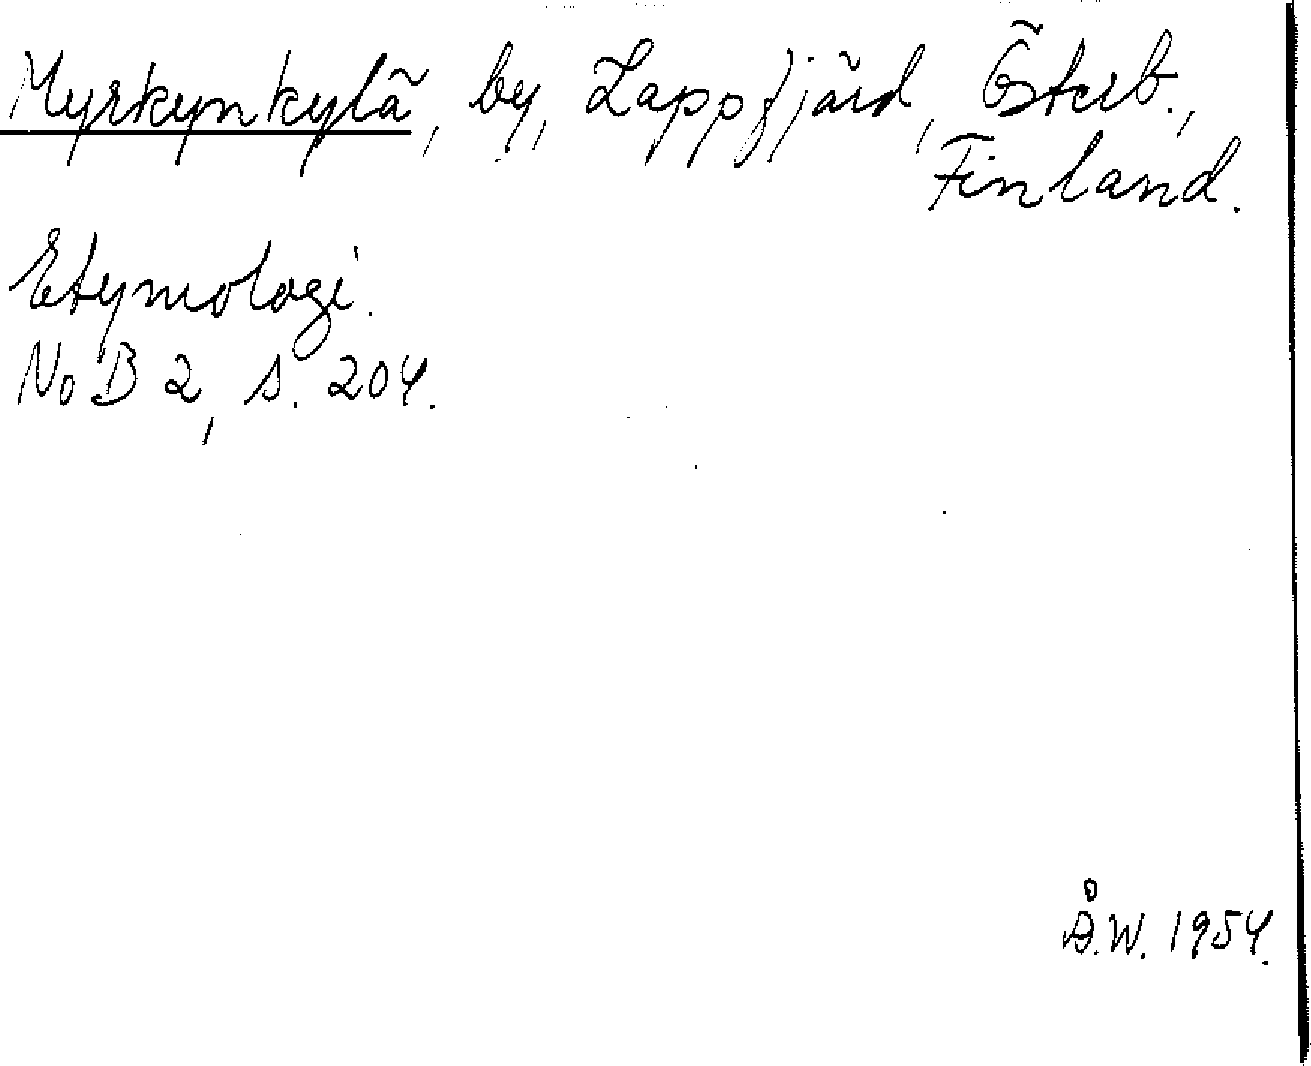 Myrkynkylä, by, Lappfjärd, Österb.,
Finland.
Etymologi.
NoB 2, s. 204.
Å.W. 1954.